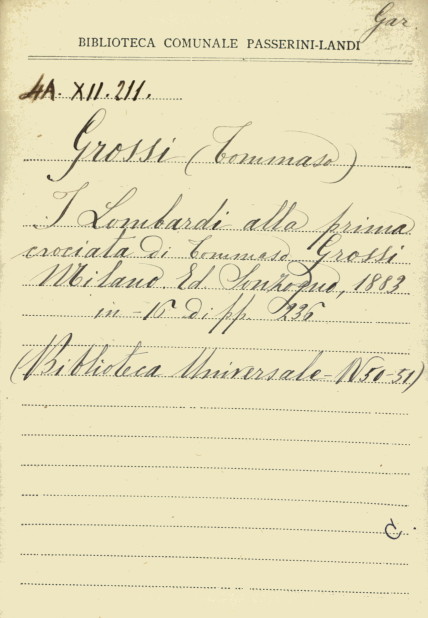 Gar.
BIBLIOTECA COMUNALE PASSERINI-LANDI
4A. XII. 211.
Grossi (Tommaso)
I Lombardi alla prima
crociata di Tommaso Grossi
Milano. Ed. Sonzogno, 1883
in-16 di pp. 236
(Biblioteca Universale - N 50-51)
C